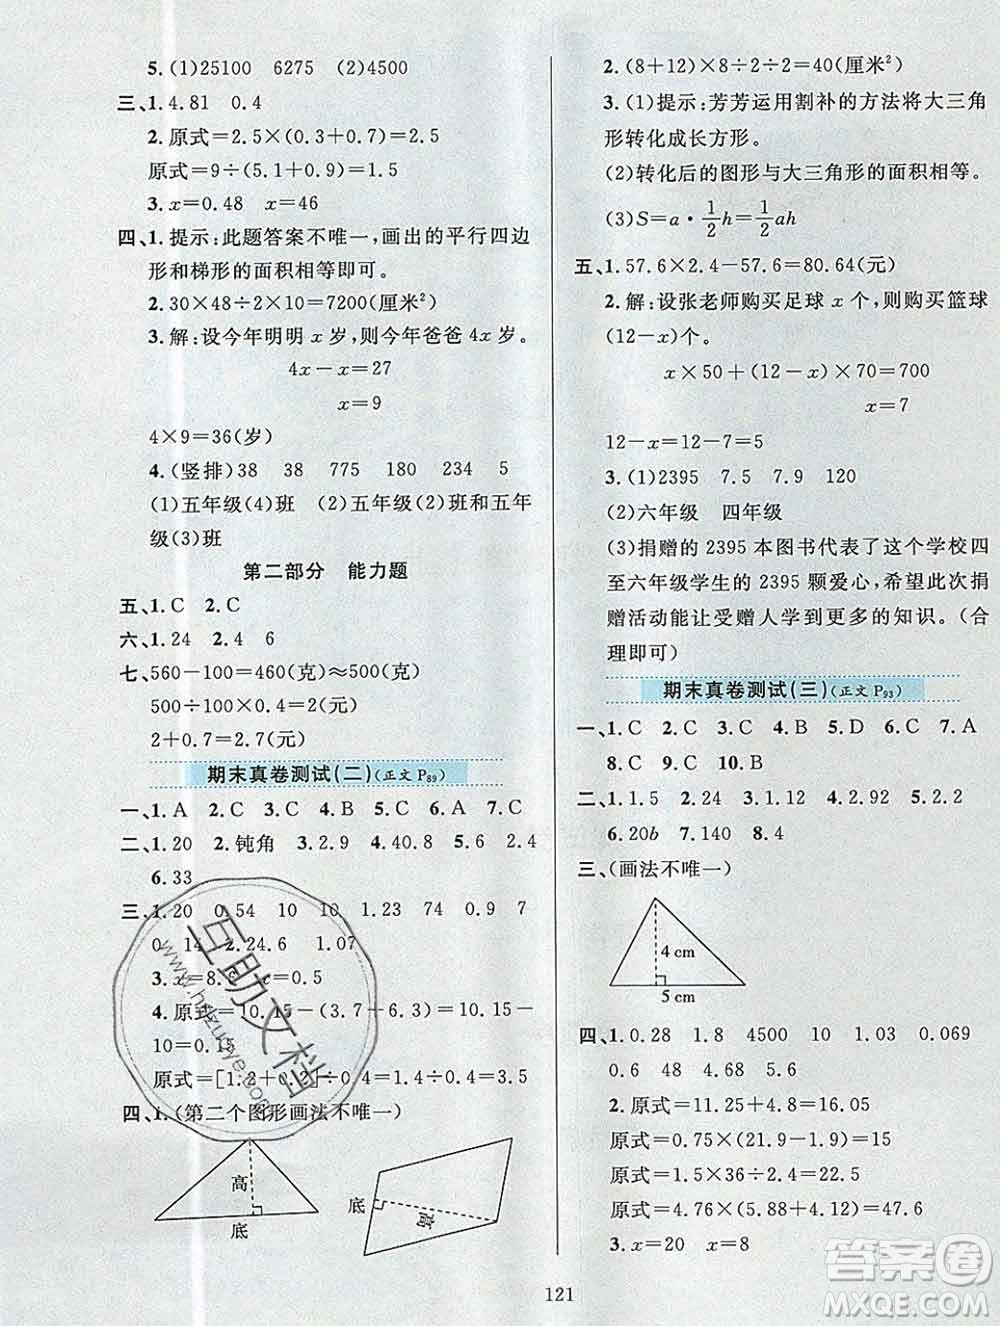 5.(1)25100 6275 (2)4500
三、1.4.81 0.4
2.原式=2.5×(0.3+0.7)=2.5
原式=9÷(5.1+0.9)=1.5
3.x=0.48 x=46
四、1.提示:此题答案不唯一,画出的平行四边
形和梯形的面积相等即可。
2.30×48÷2×10=7200(厘米²)
3.解:设今年明明 x 岁,则今年爸爸 4x 岁。
4x-x=27
x=9
4×9=36(岁)
4.(竖排)38 38 775 180 234 5
(1)五年级(4)班 (2)五年级(2)班和五年
级(3)班
第二部分 能力题
五、1.C 2.C
六、1.24 2.4 6
七、560-100=460(克)≈500(克)
500÷100×0.4=2(元)
2+0.7=2.7(元)
期末真卷测试(二)(正文 P89)
一、1.A 2.C 3.C 4.B 5.C 6.B 7.C
二、1.20 2.钝角 3.2.9 4.20 5.6 2.4
6.33
三、1.20 0.54 10 10 1.23 74 0.9 7
0 14 2.24.6 1.07
3.x=8.6 x=0.5
4.原式=10.15-(3.7+6.3)=10.15-
10=0.15
原式=[1.2+0.2]÷0.4=1.4÷0.4=3.5
四、1.(第二个图形画法不唯一)
高
底
底
高
2.(8+12)×8÷2÷2=40(厘米²)
3.(1)提示:芳芳运用割补的方法将大三角
形转化成长方形。
(2)转化后的图形与大三角形的面积相等。
(3)S=a·1/2h=1/2ah
五、1.57.6×2.4-57.6=80.64(元)
2.解:设张老师购买足球 x 个,则购买篮球
(12-x)个。
x×50+(12-x)×70=740
x=7
12-x=12-7=5
3.(1)2395 7.5 7.9 120
(2)六年级 四年级
(3)捐赠的 2395 本图书代表了这个学校四
至六年级学生的 2395 颗爱心,希望此次捐
赠活动能让受赠人学到更多的知识。(合
理即可)
期末真卷测试(三)(正文 P93)
一、1.C 2.C 3.C 4.B 5.D 6.C 7.A
8.C 9.C 10.B
二、1.1.5 2.24 3.1.12 4.2.92 5.2.2
6.20b 7.140 8.4
三、(画法不唯一)
4 cm
5 cm
四、1.0.28 1.8 4500 10 1.03 0.069
0.6 48 4.68 5.6
2.原式=11.25+4.8=16.05
原式=0.75×(2+18)=15
原式=1.5×36÷2.4=22.5
原式=4.76×(5.88+4.12)=47.6
3.x=20 x=8
121
互助文档
答案圈
MXQE.COM